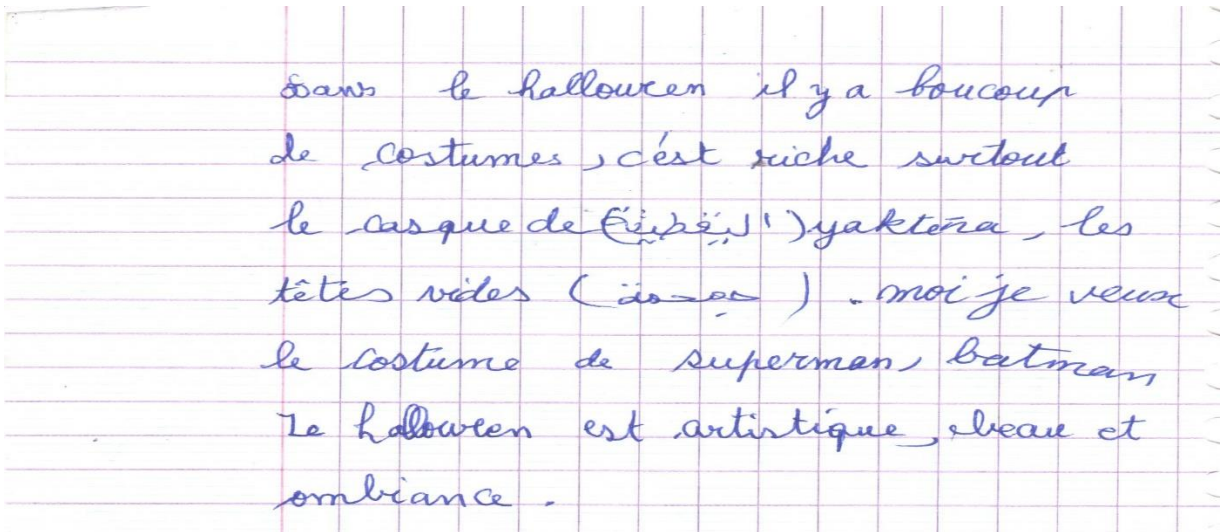 Dans le hallowen il y a boucoup
de costumes, c'est riche surtout
le casque de (اليقطينة) yakteña, les
têtes vides (جمجمة). moi je veux
le costume de superman, batman
Le hallowen est artistique, beau et
ombiance.